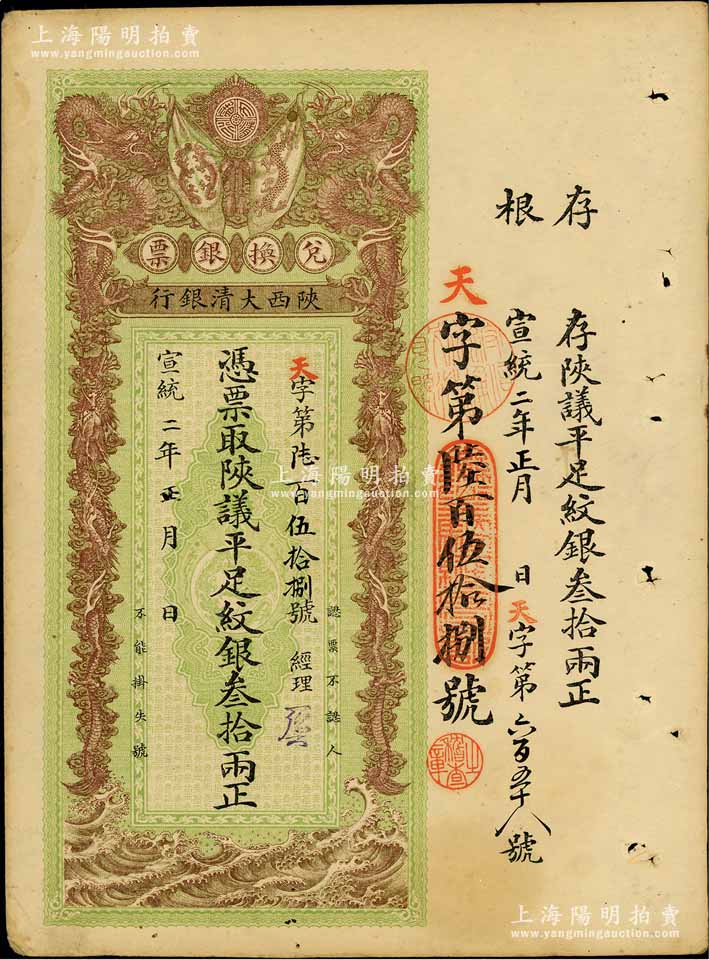 上海陽明拍賣
www.yangmingauction.com
上海陽明拍賣
www.yangmingauction.com
存根
存陝議平足紋銀叁拾兩正
宣統二年正月 日 天字第六百五十八號
天字第陸百伍拾捌號
稽查之章
兌換銀票
陝西大清銀行
認票不認人
天字第陸百伍拾捌號 經理
憑票取陝議平足紋銀叁拾兩正
宣統二年正月 日
不能掛失號
上海陽明拍賣
www.yangmingauction.com
上海陽明拍賣
www.yangmingauction.com